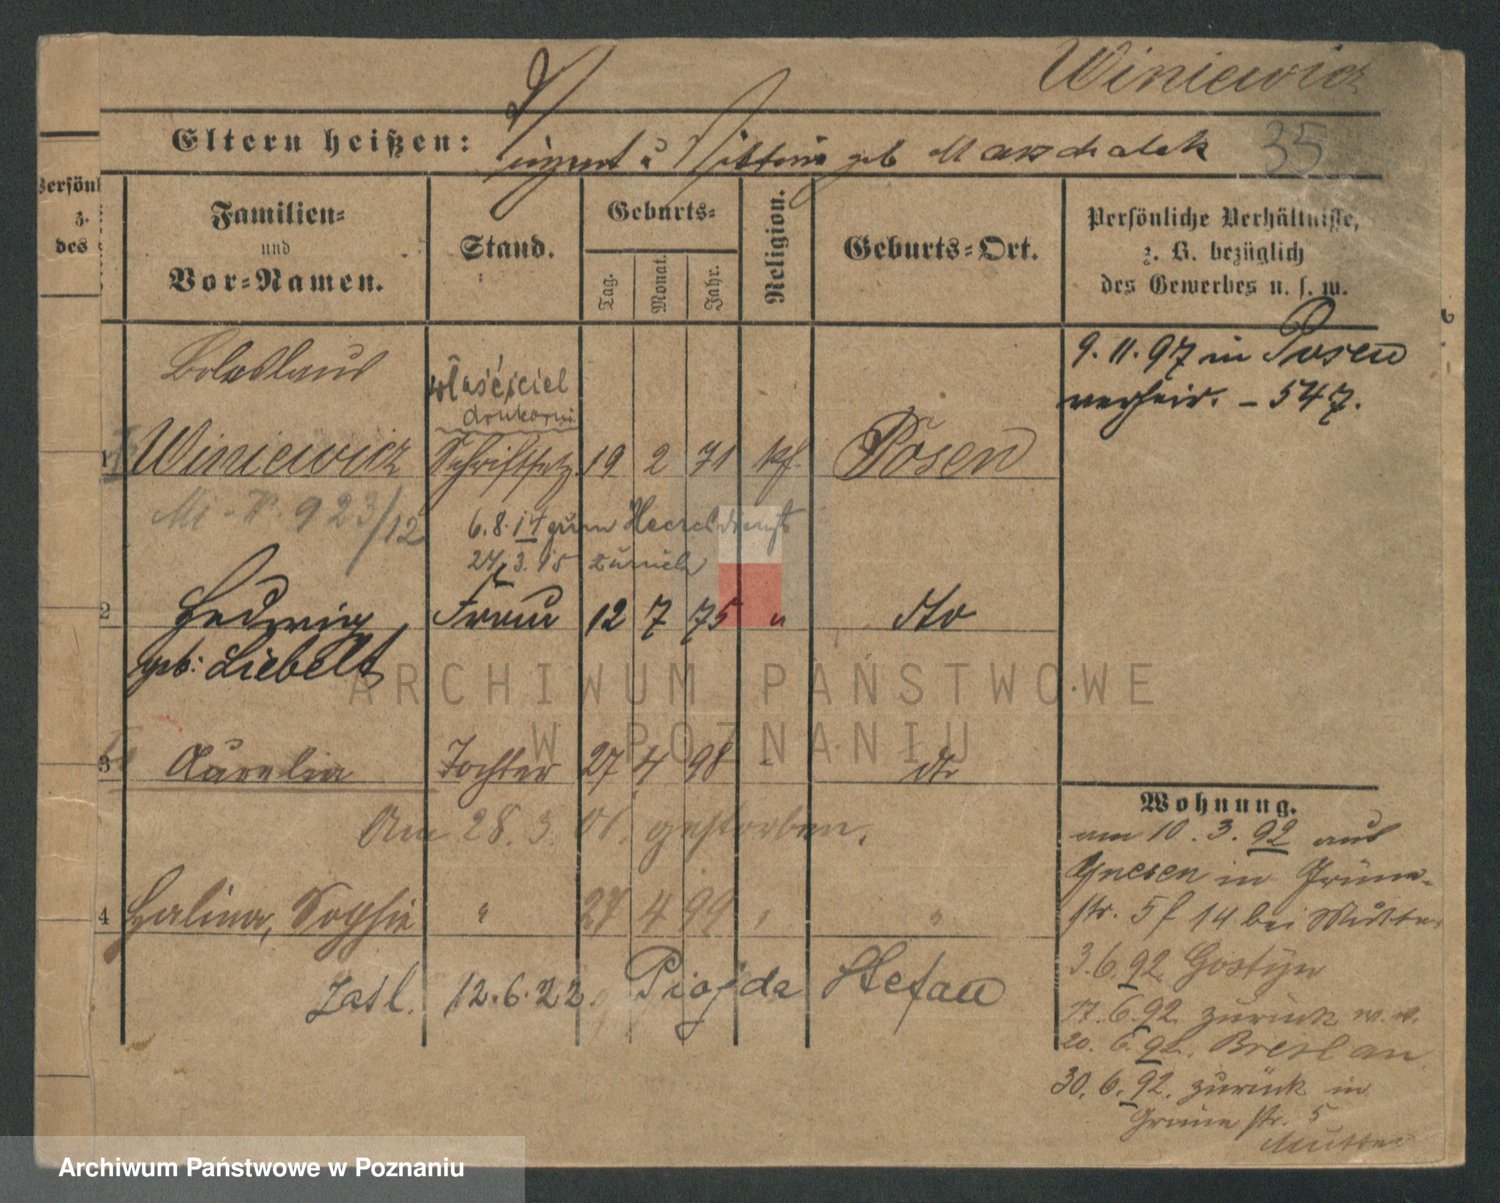 Winiewicz
35
Eltern heißen: Vinzent u Viktoria geb Marschalek
Persönl
z.
des
Familien-
und
Vor-Namen.
Stand.
Geburts-
Tag.
Monat.
Jahr.
Religion.
Geburts-Ort.
Persönliche Verhältnisse,
z. B. bezüglich
des Gewerbes u. s. w.
Boleslaus
właściciel
drukarni
1 Winiewicz Schriftsetz. 19 2 71 kf. Posen
923/12
6.8.14 zum Heeresdienst
27.3.15 zurück
2 Hedwig Frau 12 7 75 " dto
geb: Liebelt
3 Aurelia Tochter 27 4 98 dto
Am 28.3.01. gestorben.
4 Halina, Sophie " 27 4 99 " "
Zasl. 12.6.22. Piojda Stefan
9.11.97 in Posen
verheir. - 547.
Wohnung.
am 10.3.92 aus
Gnesen in Grüne-
str. 5 f 14 bei Mutter
3.6.92 Gostyn
17.6.92 zurück w. v.
20.6.92. Breslau
30.6.92. zurück in
Grüne str. 5
Mutter
ARCHIWUM PAŃSTWOWE
W POZNANIU
Archiwum Państwowe w Poznaniu